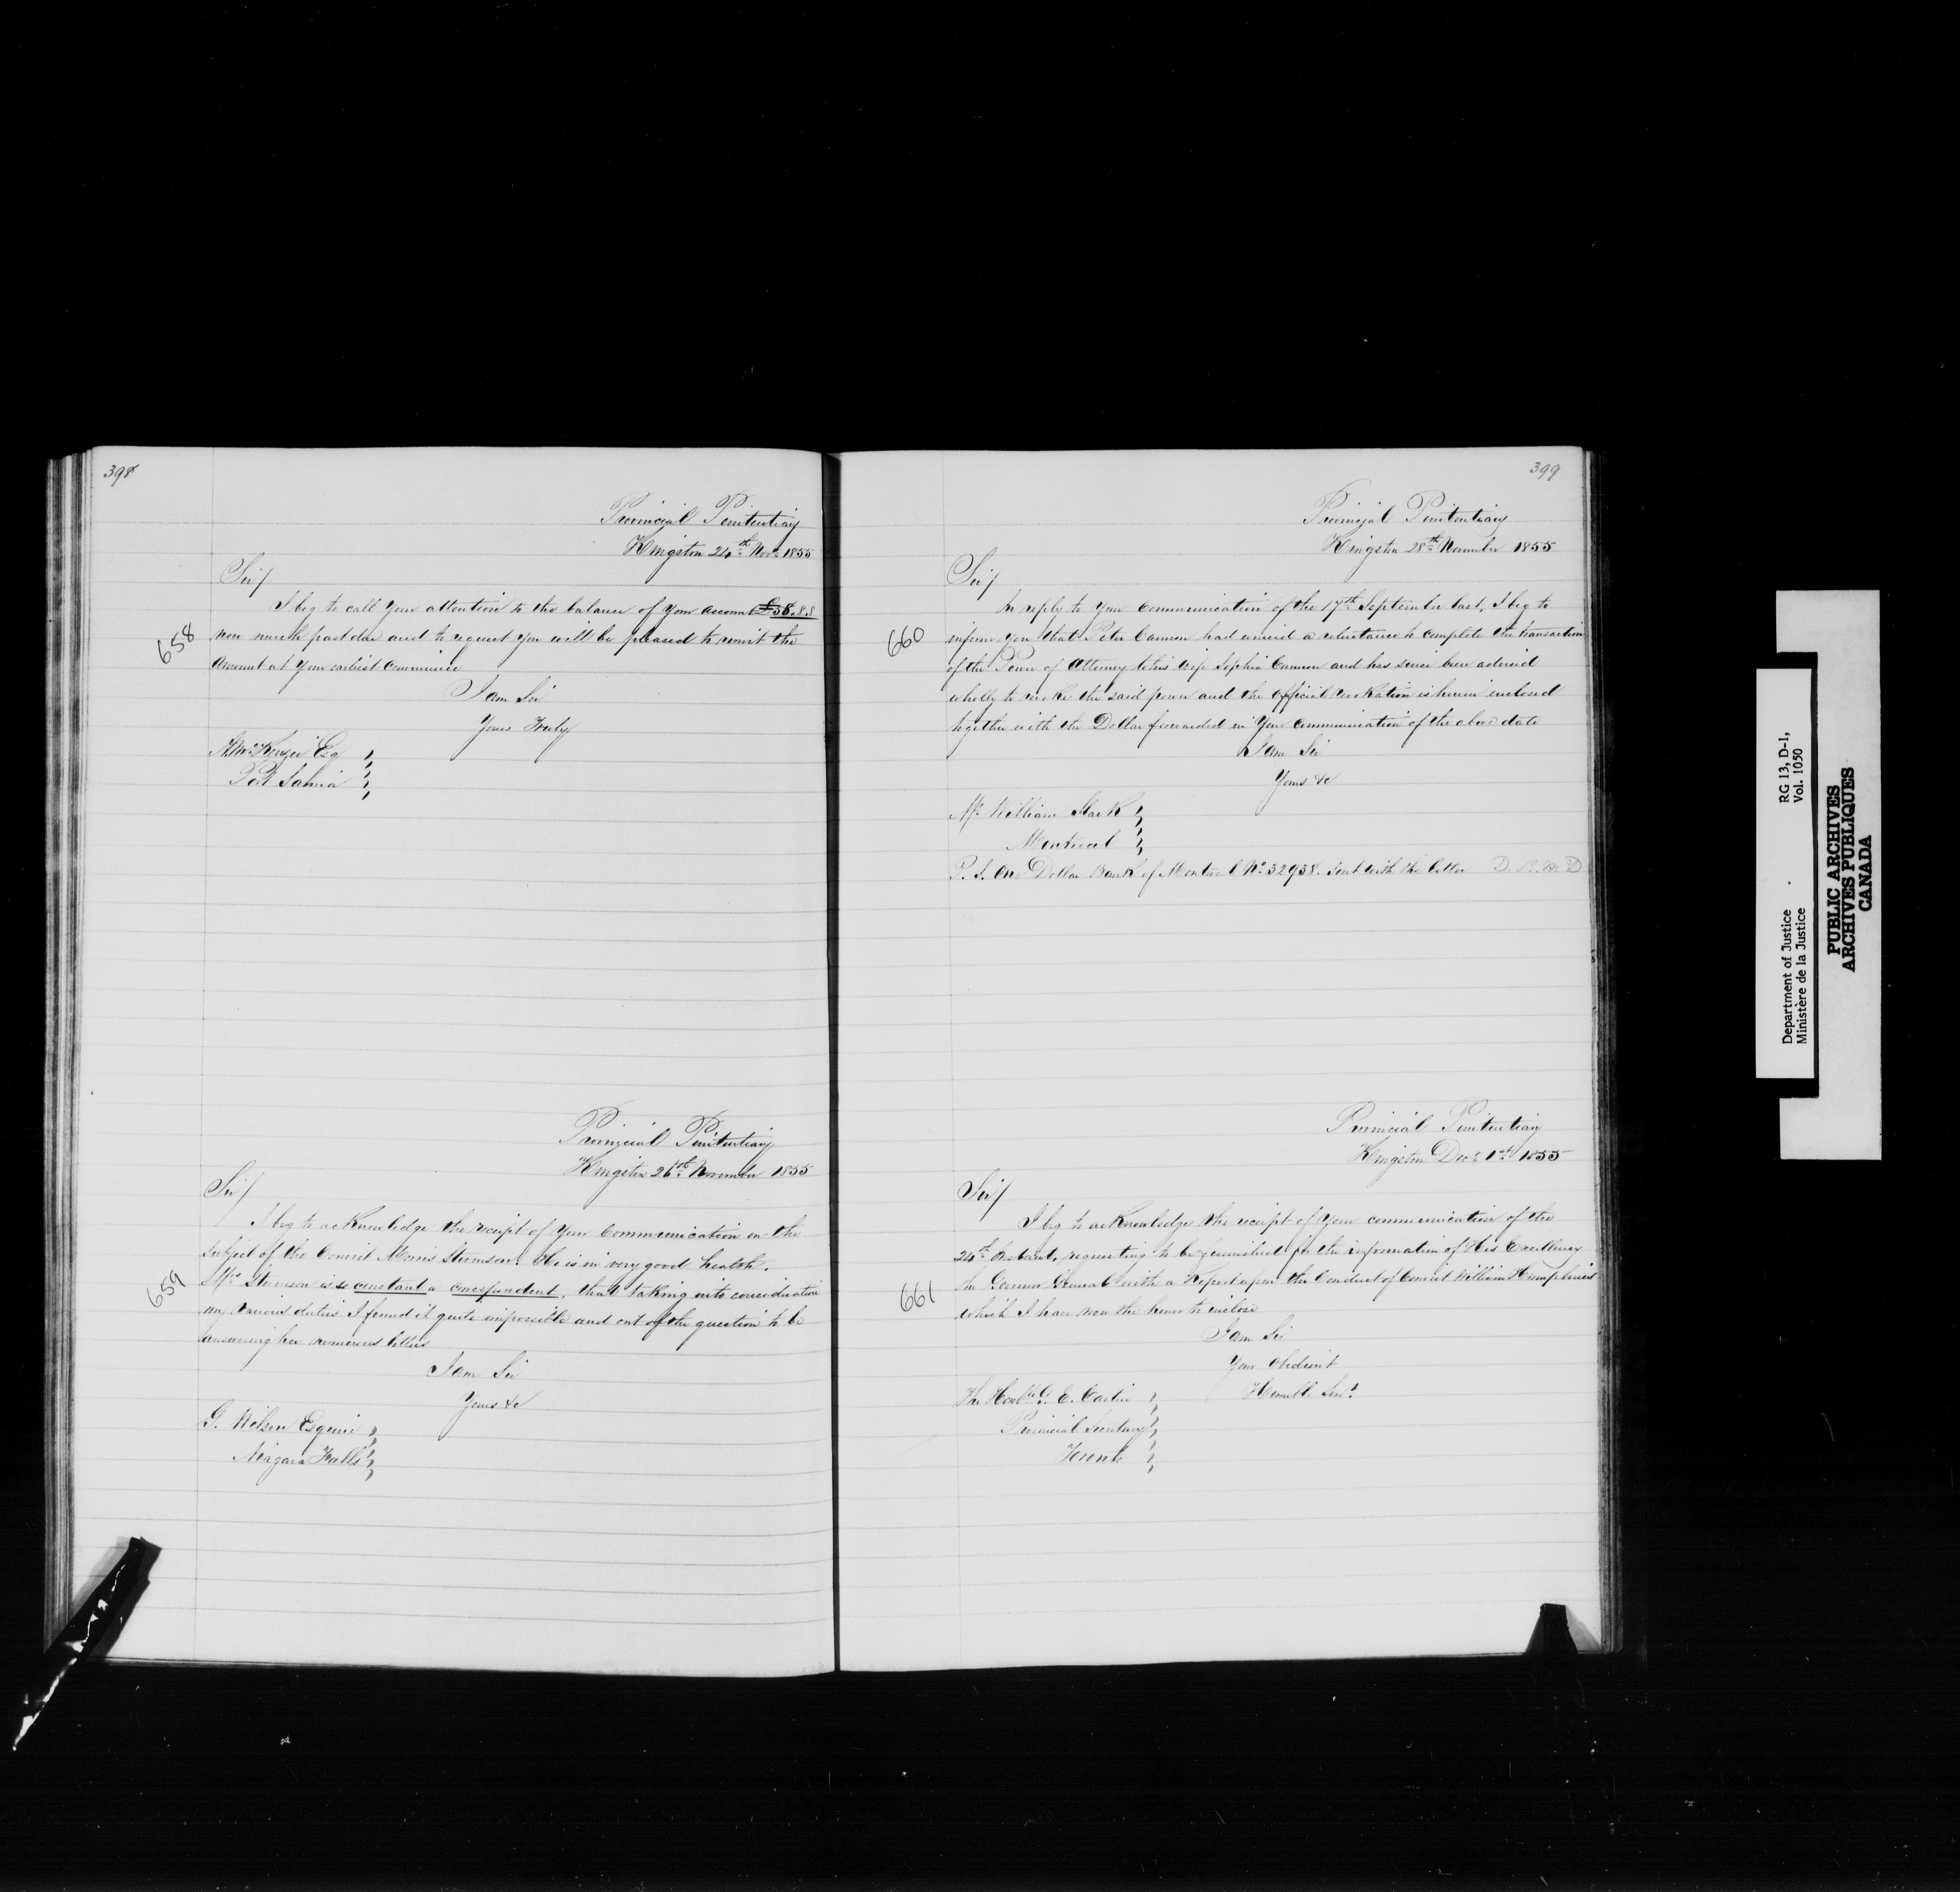 398
Provincial Penitentiary
Kingston 24th Nov. 1855
Sir/
I beg to call your attention to the balance of your account £58.8.8
now much past due and to request you will be pleased to remit the
Amount at your earliest Convenience
I am Sir
Yours Truly
McKenzie Esq
Port Sarnia
658
Provincial Penitentiary
Kingston 26th November 1855
Sir/
I beg to acknowledge the receipt of your Communication on the
Subject of the Convict Morris Stevenson. He is in very good health.
Mrs Stevenson is so constant a correspondent, that taking into consideration
my various duties I found it quite impossible and out of the question to be
answering her numerous letters
I am Sir
Yours &c
G. Wilson Esquire
Niagara Falls
659
399
Provincial Penitentiary
Kingston 28th November 1855
Sir/
In reply to your Communication of the 17th September last, I beg to
inform you that Peter Cannon had a reluctance to complete the transaction
of the Power of Attorney to his wife Sophia Cannon and has since been advised
wholly to revoke the said power and the Official revokation is herein inclosed
together with the Dollar forwarded in your Communication of the above date
I am Sir
Yours &c
Mr William Slack
Montreal
P. S. One Dollar Bank of Montreal No 32938. Sent with the letter
660
Provincial Penitentiary
Kingston Decr 1st 1855
Sir/
I beg to acknowledge the receipt of your communication of the
24th Instant, requesting to be furnished for the information of His Excellency
the Governor General with a Report upon the Conduct of Convict William Humphries
which I have now the honor to inclose
I am Sir
Your Obedient
Humble Servt
The Honble G. E. Cartier
Provincial Secretary
Toronto
661
Department of Justice RG 13, D-1,
Ministère de la Justice Vol. 1050
PUBLIC ARCHIVES
ARCHIVES PUBLIQUES
CANADA